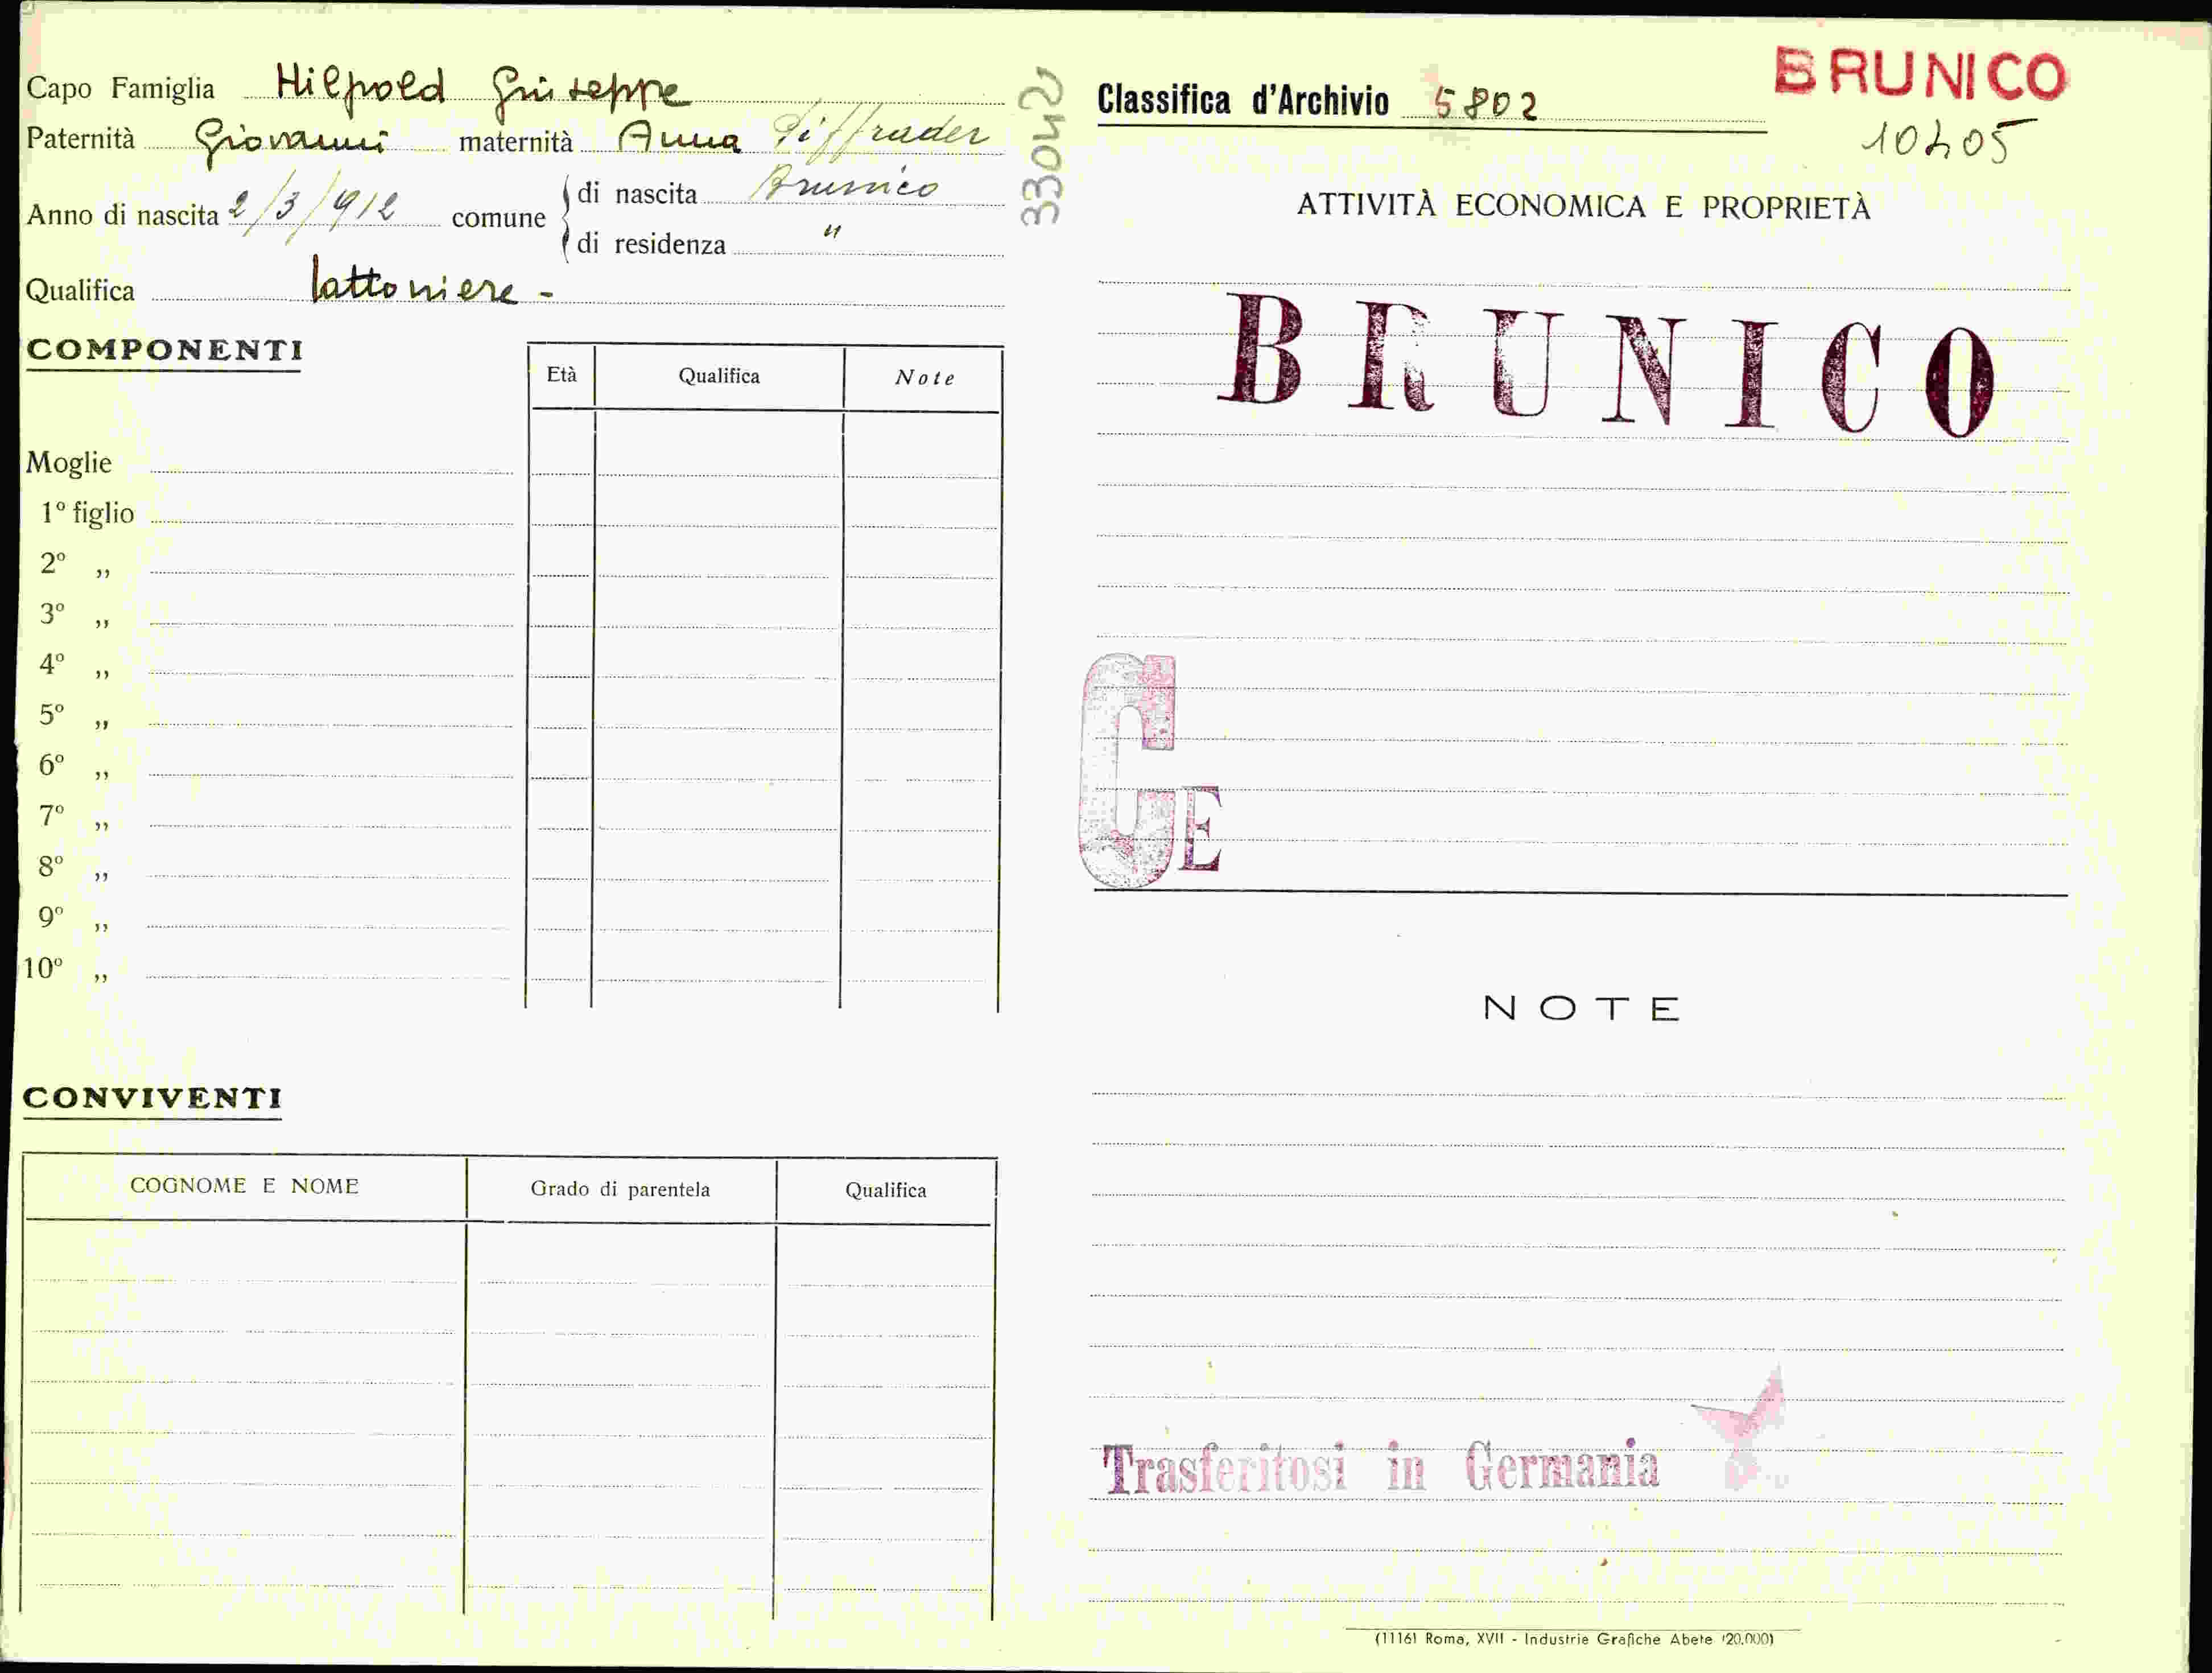 Capo Famiglia Hilpold Giuseppe
Paternità Giovanni maternità Anna Piffrader
Anno di nascita 2/3/912 comune di nascita Brunico
di residenza "
Qualifica lattoniere -
COMPONENTI
Età Qualifica Note
Moglie
1º figlio
2º „
3º „
4º „
5º „
6º „
7º „
8º „
9º „
10º „
CONVIVENTI
COGNOME E NOME Grado di parentela Qualifica
33042
Classifica d'Archivio 5802
BRUNICO
10405
ATTIVITÀ ECONOMICA E PROPRIETÀ
BRUNICO
C E
NOTE
Trasferitosi in Germania
(11161 Roma, XVII - Industrie Grafiche Abete (20.000)